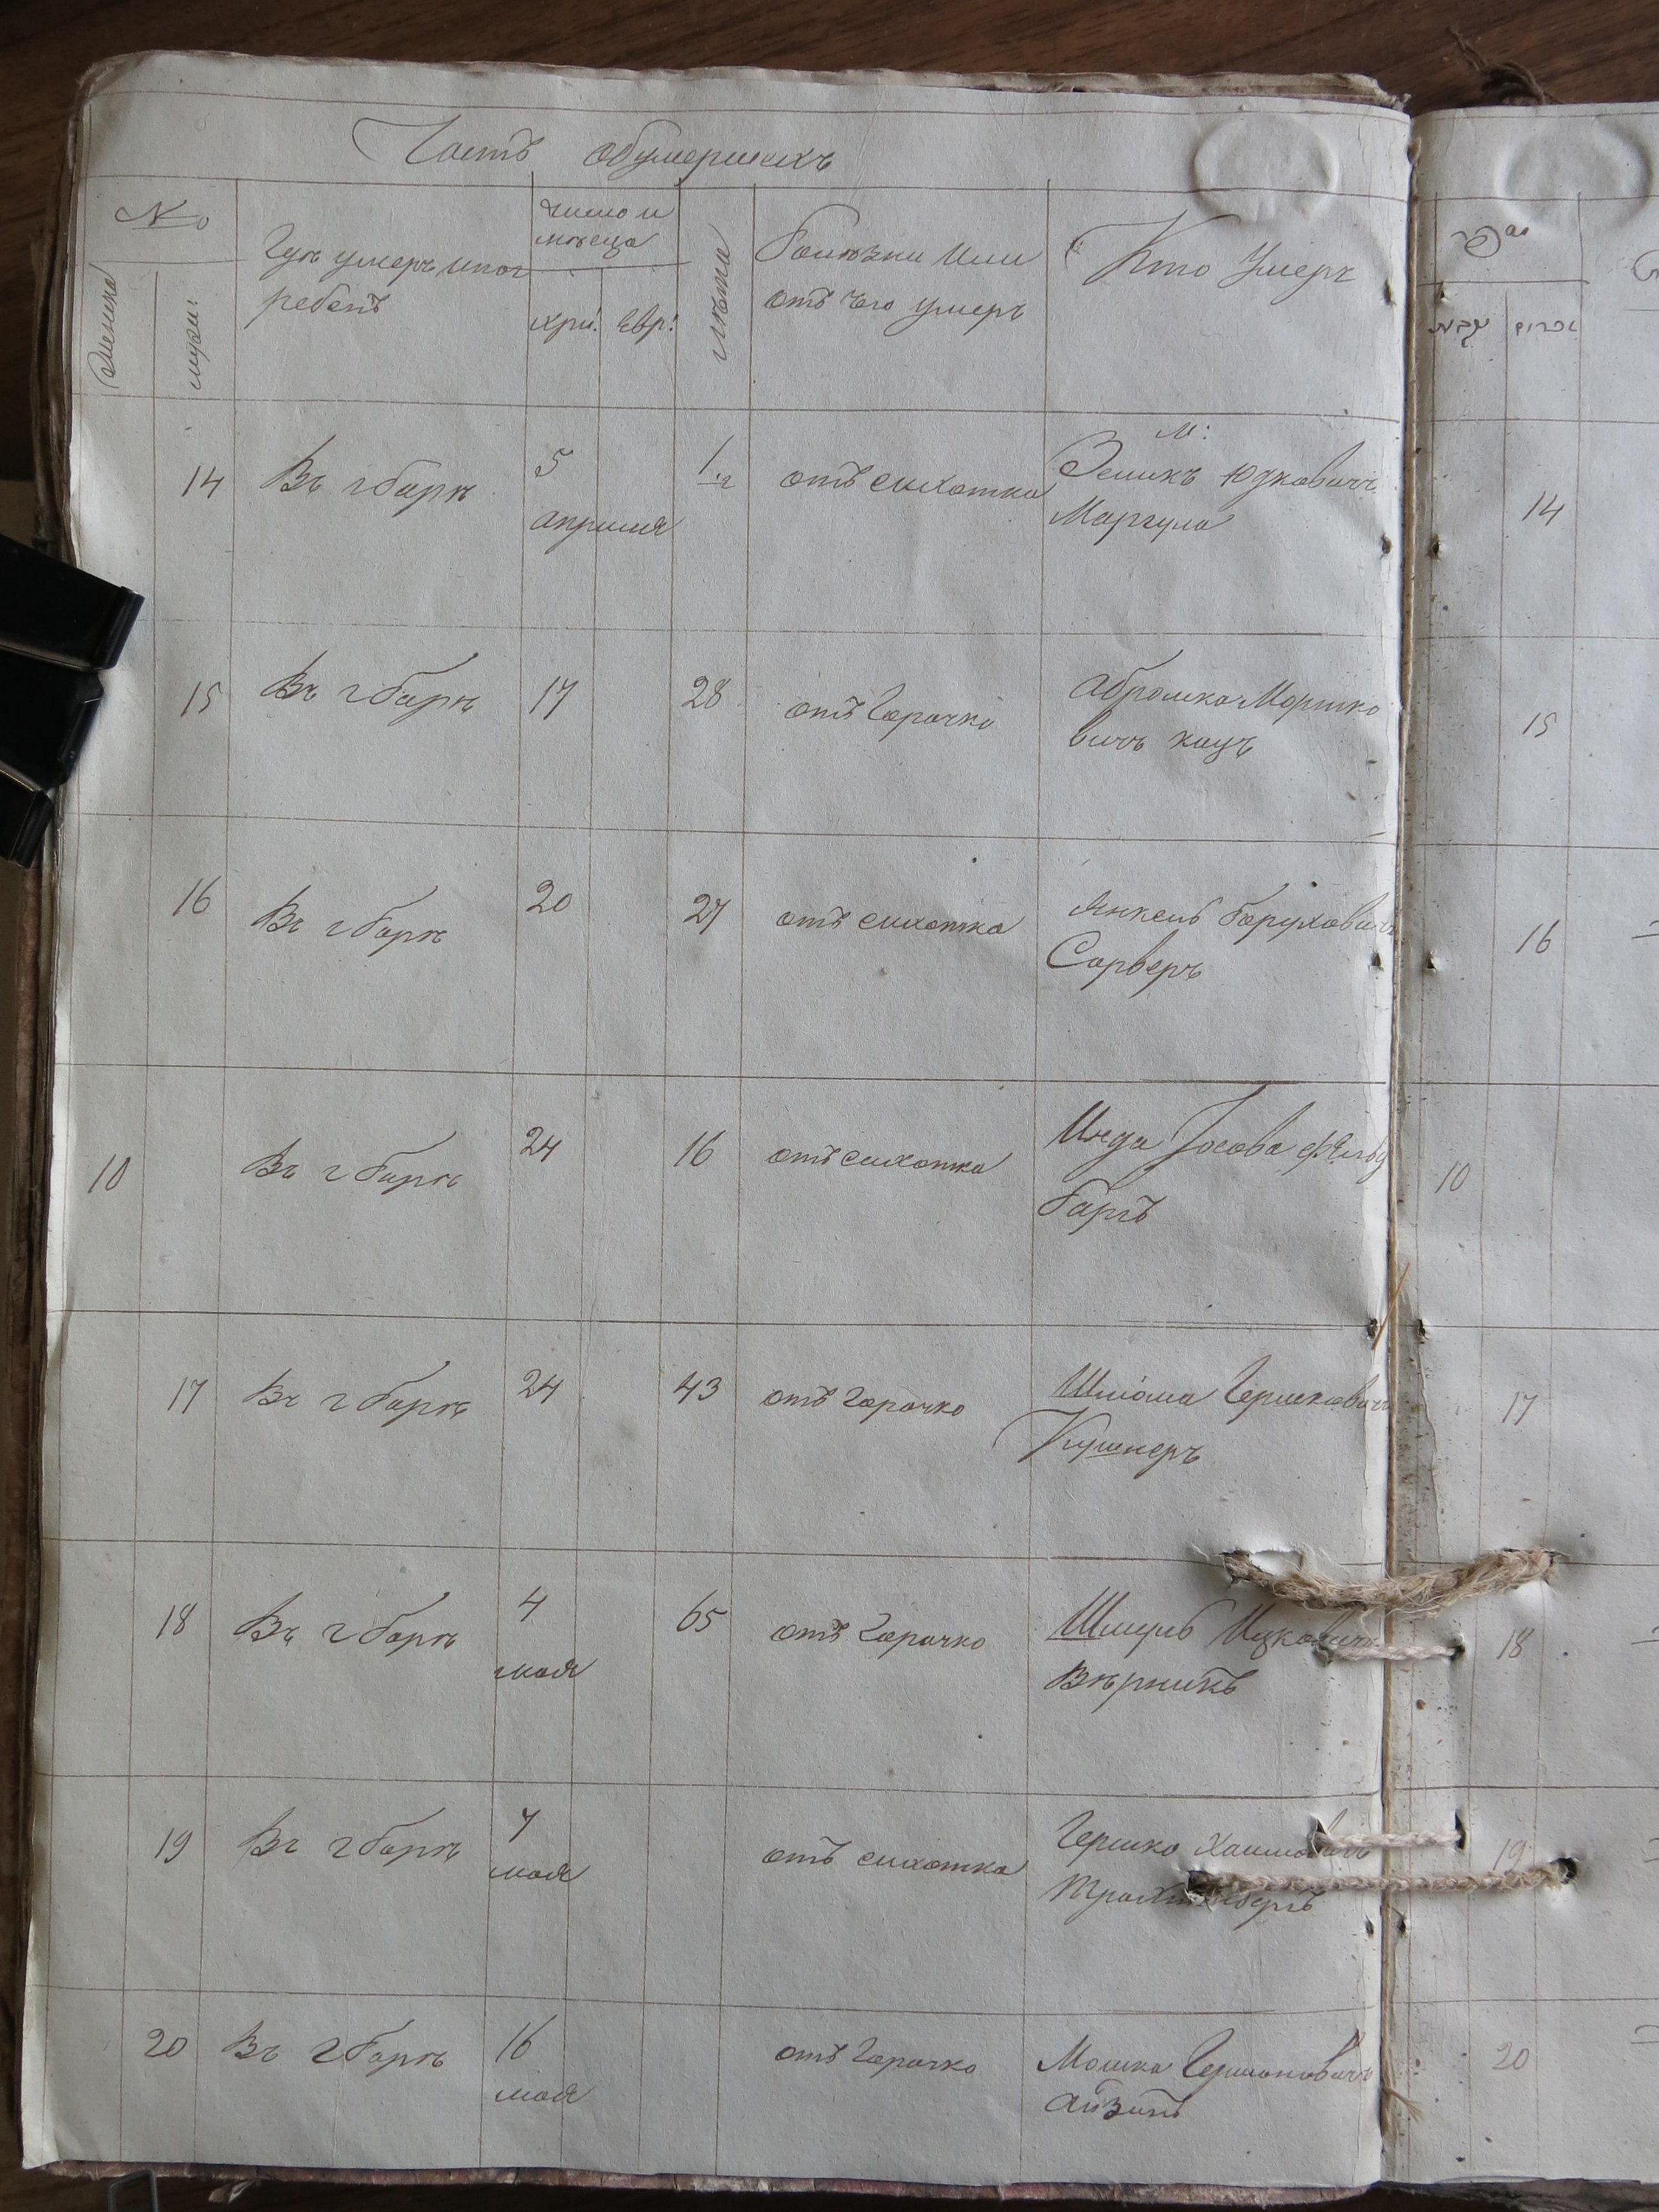 Часть обумершихъ
№
женска
мужи:
Гдѣ умеръ и пог
ребенъ
число и
мѣсеца
хри: Евр:
лѣта
Болѣзни или
отъ чего умеръ
Кто умеръ
14 Въ г Барѣ 5 апреля 1/2 отъ сихотка М: Зеликъ Юдковичъ
Маргула
15 Въ г Барѣ 17 28 отъ Горачко Абрамка Моршко
вичъ кацъ
16 Въ г Барѣ 20 27 отъ сихотка Янкель Баруховичъ
Сарверъ
10 Въ г Барѣ 24 16 отъ сихотка Инда Іосова
Баргъ
17 Въ г Барѣ 24 43 отъ горачко Шлёма Гершковичъ
Кушнеръ
18 Въ г Барѣ 4 мая 65 отъ Горачко Шмуль Ицковичъ
Вѣрникъ
19 Въ г Барѣ 7 мая отъ сихотка Гершко Хаимовичъ
Трахтенбергъ
20 Въ г Барѣ 16 мая отъ Горачко Мошка
Айзинъ
14
15
16
10
17
18
19
20